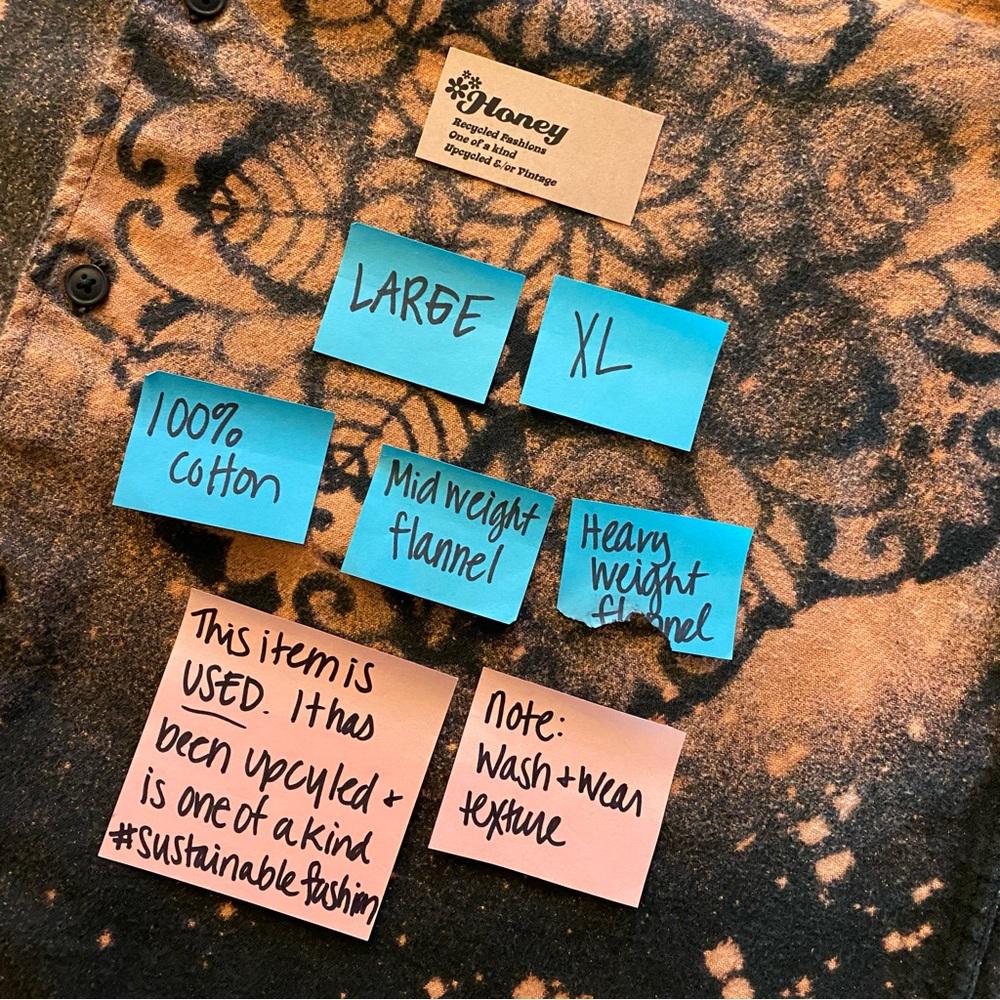 Honey
Recycled Fashions
One of a kind
Upcycled &/or Vintage
LARGE
XL
100%
cotton
Mid weight
flannel
Heavy
weight
flannel
This item is
USED. It has
been upcyled +
is one of a kind
#sustainablefashion
note:
wash + wear
texture